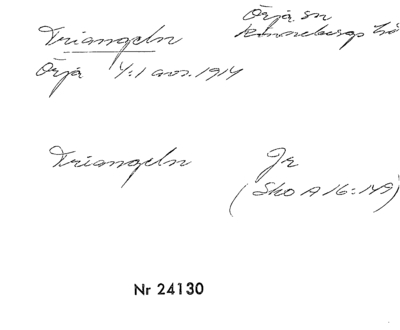 Triangeln
Örja sn
Rönnebergs hd
Örja 4:1 avs. 1914
Triangeln
Jr
(Sko A 16:149)
Nr 24130